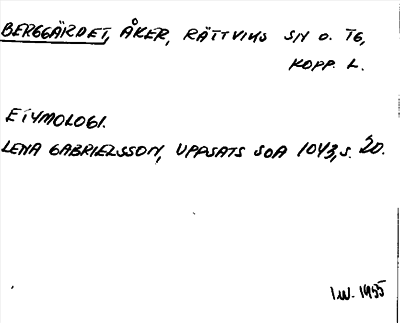 BERGGÄRDET, ÅKER, RÄTTVIKS SN O. TG,
KOPP. L.
ETYMOLOGI.
LENA GABRIELSSON, UPPSATS SOA 1043, S. 20.
IW. 1955